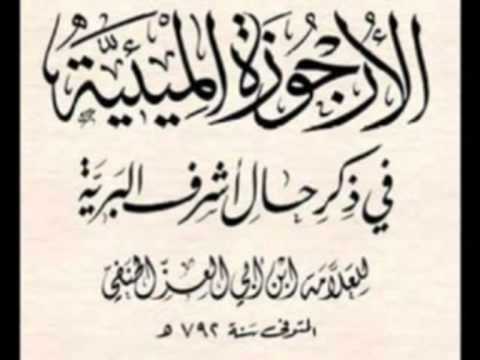 الأُرجُوزَة المِيئيَّة
في ذِكرِ حَالِ أَشرَفِ البَرِيَّة
للعَلّامَة ابن أبي العِزّ الحَنَفي
المتوفى سَنة ٧٩٢ هـ